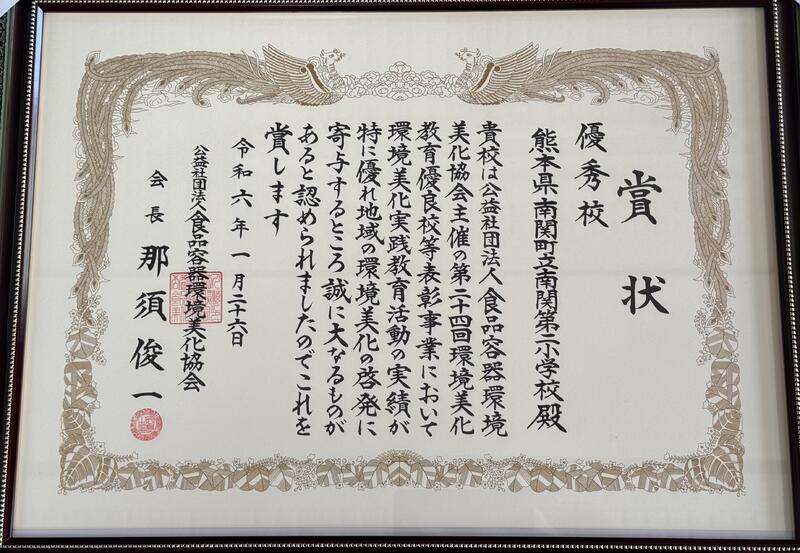 賞状
優秀校
熊本県南関町立南関第二小学校殿
貴校は公益社団法人食品容器環境
美化協会主催の第二十四回環境美化
教育優良校等表彰事業において
環境美化実践教育活動の実績が
特に優れ地域の環境美化の啓発に
寄与するところ誠に大なるものが
あると認められましたのでこれを
賞します
令和六年一月二十六日
公益社団法人食品容器環境美化協会
会長 那須俊一